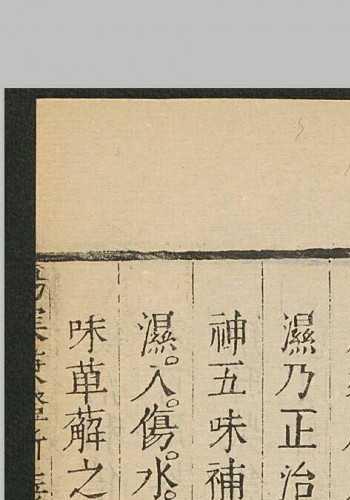 濕乃正治
神五味補
濕。入。傷。水。
味萆薢之